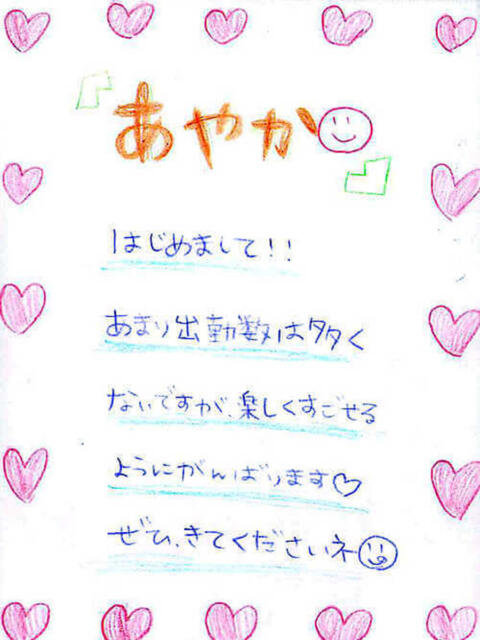 『あやか』
はじめまして!!
あまり出勤数は多く
ないですが、楽しくすごせる
ようにがんばります♡
ぜひ、きてくださいネ